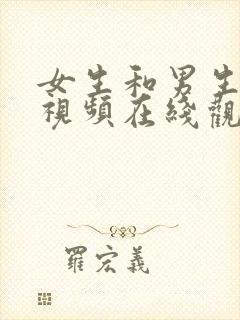 女生和男生
視頻在綫觀
羅宏義